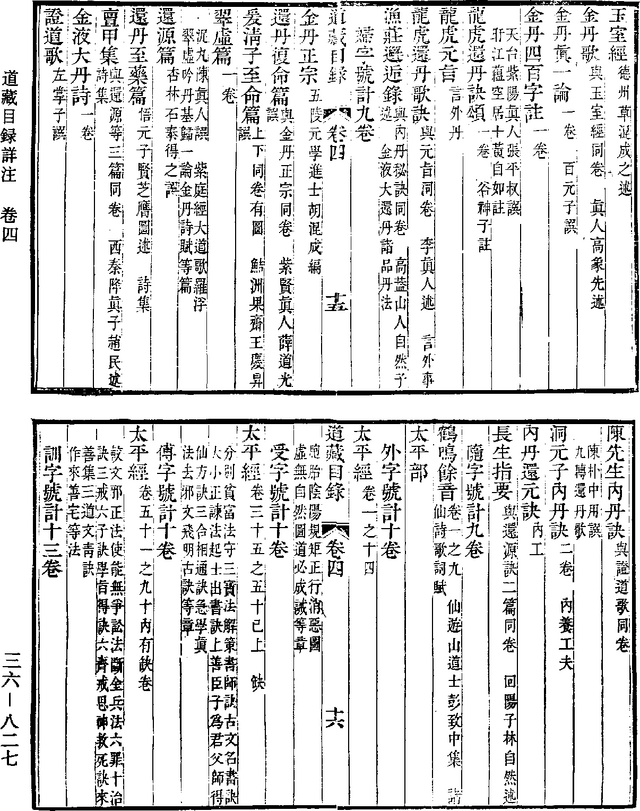 道藏目録詳注　卷四
玉室經　德州草混成之述
金丹歌　與玉室經同卷　真人高象先述
金丹真一論　一卷　百元子譔
金丹四百字註　一卷
天台紫陽真人張平叔譔
盱江蘊空居士黃自如註
龍虎還丹訣頌　一卷　谷神子註
龍虎元旨　言外丹
龍虎還丹歌訣　與元旨同卷　李真人述　言外事
漁莊邂逅錄　與內丹秘訣同卷　高蓋山人自然子
述　金液大還丹諸品丹法
號計九卷
道藏目録　卷四　十五
金丹正宗　五陵元學進士胡混成編
還丹復命篇　與金丹正宗同卷　紫賢真人薛道光
譔
爰清子至命篇　上下同卷有圖　鮚洲果齋王慶昇
譔
翠虛篇　一卷
泥九陳真人譔　紫庭經大道歌羅浮
翠虛吟丹基歸一論金丹詩賦等篇
還源篇　杏林石泰得之譔
還丹至藥篇　悟元子賢芝膺圖述　詩集
賣甲集　與還源等三篇同卷　西秦降真子趙民述
詩集
金液大丹詩　一卷
證道歌　左掌子譔
陳先生內丹訣　與證道歌同卷
陳朴中用譔
九轉還丹歌
洞元子內丹訣　二卷　內養工夫
內丹還元訣　內工
長生指要　與還源訣二篇同卷　回陽子林自然述
隨字號計九卷
鶴鳴餘音　卷一之九　仙遊山道士彭致中集　諸
仙詩歌詞賦
太平部
外字號計十卷
太平經　卷一之十四
道藏目録　卷四　十六
胞胎陰陽規矩正行消惡圖
虛無自然圖道必成誡等章
受字號計十卷
太平經　卷三十五之五十已上　缺
分別貧富法守三寶法解葉書師訣古文名書訣
大小正諫法起土出書訣上善臣子爲君父師得
仙方訣三合相通訣急學真
法去邪文飛明古訣等章
傅字號計十卷
太平經　卷五十一之九十內有缺卷
敎文邪正法使能無爭訟法斷金兵法六罪十治
訣三戒六子訣學者得訣六齊戒思神救死訣來
善集三道文書訣
作來善宅等法
訓字號計十三卷
三六—八二七